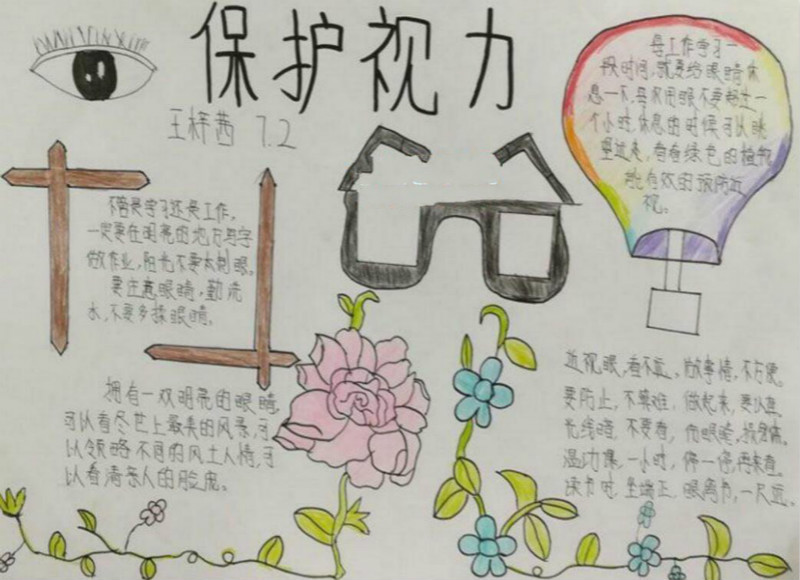 保护视力
王梓茜 7.2
每工作学习一
段时间,就要给眼睛休
息一下,每次用眼不要超过一
个小时,休息的时候可以眺
望远处,看看绿色的植物
能有效的预防近
视。
不管是学习还是工作,
一定要在明亮的地方写字
做作业,阳光不要太刺眼。
要注意眼睛,勤洗
水,不要多揉眼睛。
拥有一双明亮的眼睛,
可以看尽世上最美的风景,可
以领略不同的风土人情,可
以看清亲人的脸庞。
近视眼,看不远,做事情,不方便。
要防止,不算难,做起来,要认真。
光线暗,不要看,伤眼睛,损身体。
温功课,一小时,停一停,再来看。
读书时,坐端正,眼离书,一尺远。